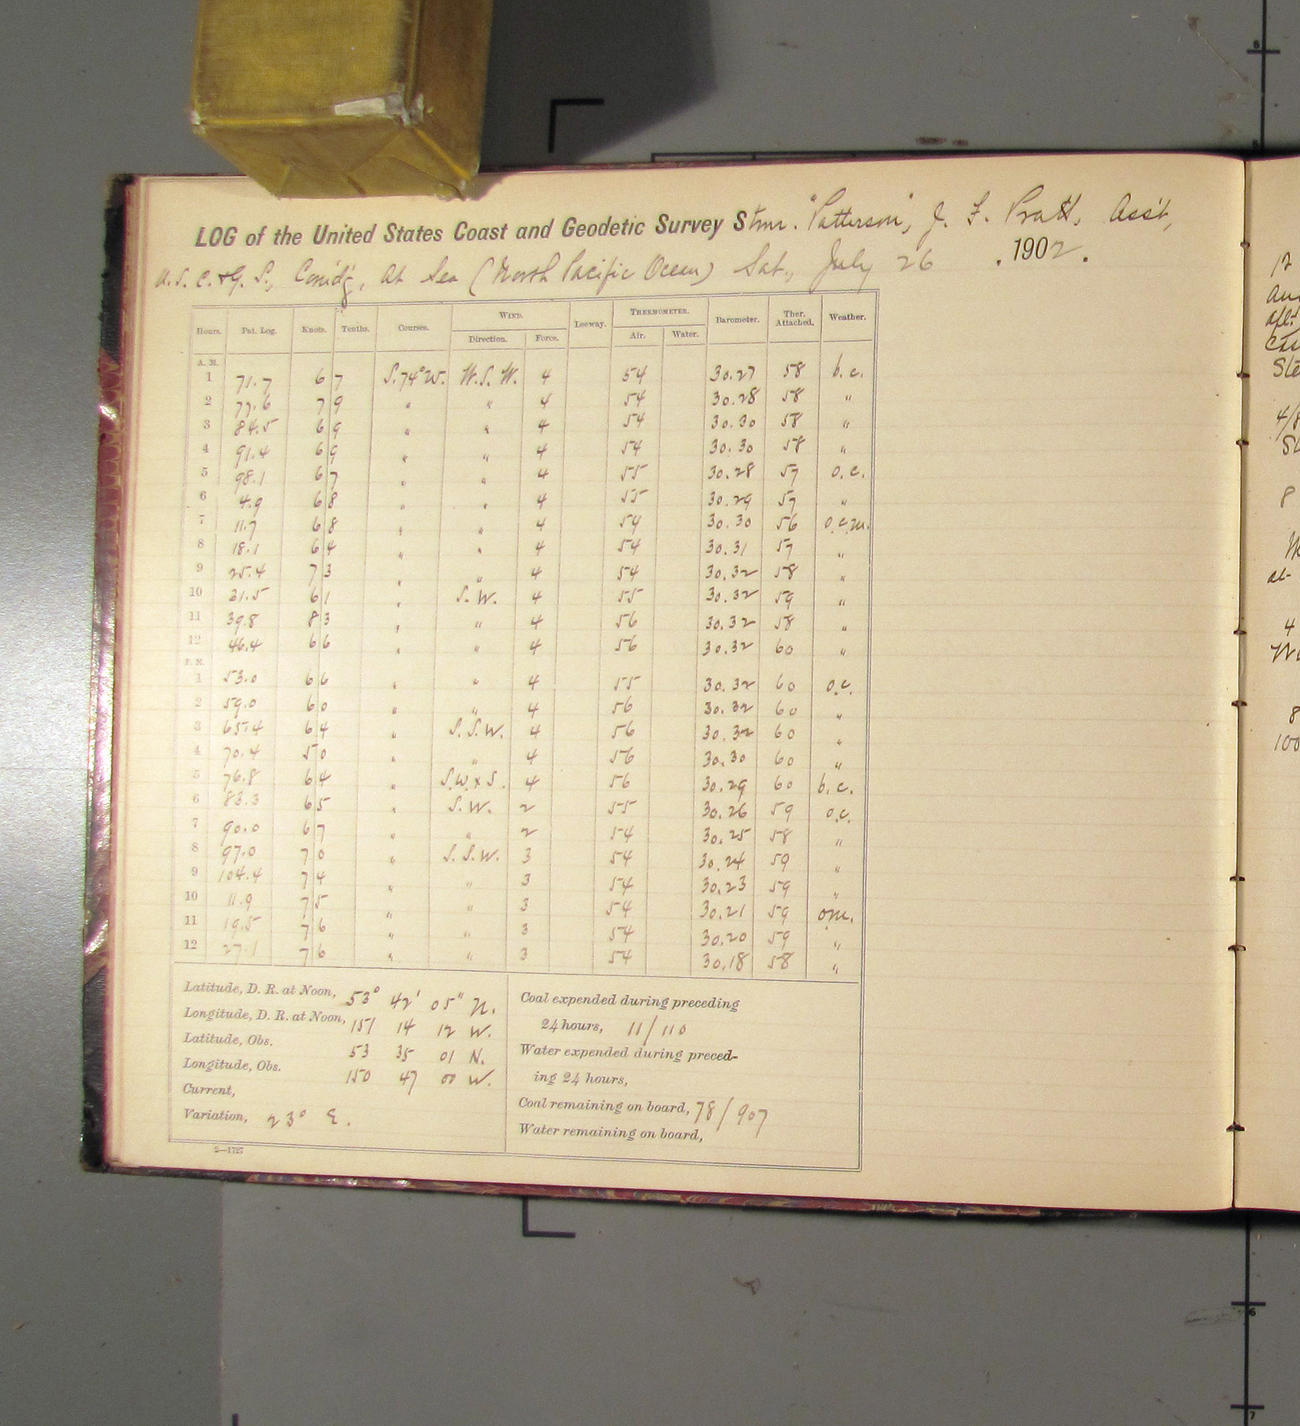 LOG of the United States Coast and Geodetic Survey Stmr. "Patterson", J. F. Pratt, Ass't,
U.S.C.&G.S., Comd'g, At Sea (North Pacific Ocean) Sat., July 26 .1902.
Hours. Pat. Log. Knots. Tenths. Courses. WIND. Leeway. THERMOMETER. Barometer. Ther. Attached. Weather.
Direction. Force. Air. Water.
A. M.
1 71.7 6 7 S.74°W. W.S.W. 4 54 30.27 58 b.c.
2 77.6 7 9 " " 4 54 30.28 58 "
3 84.5 6 9 " " 4 54 30.30 58 "
4 91.4 6 9 " " 4 54 30.30 58 "
5 98.1 6 7 " " 4 55 30.28 57 o.c.
6 4.9 6 8 " " 4 55 30.29 57 "
7 11.7 6 8 " " 4 54 30.30 56 o.c.m.
8 18.1 6 4 " " 4 54 30.31 57 "
9 25.4 7 3 " " 4 54 30.32 58 "
10 31.5 6 1 " S.W. 4 55 30.32 59 "
11 39.8 8 3 " " 4 56 30.32 58 "
12 46.4 6 6 " " 4 56 30.32 60 "
P. M.
1 53.0 6 6 " " 4 55 30.32 60 o.c.
2 59.0 6 0 " " 4 56 30.32 60 "
3 65.4 6 4 " S.S.W. 4 56 30.32 60 "
4 70.4 5 0 " " 4 56 30.30 60 "
5 76.8 6 4 " S.W.xS. 4 56 30.29 60 b.c.
6 83.3 6 5 " S.W. 2 55 30.26 59 o.c.
7 90.0 6 7 " " 2 54 30.25 58 "
8 97.0 7 0 " S.S.W. 3 54 30.24 59 "
9 104.4 7 4 " " 3 54 30.23 59 "
10 11.9 7 5 " " 3 54 30.21 59 o.m.
11 19.5 7 6 " " 3 54 30.20 59 "
12 27.1 7 6 " " 3 54 30.18 58 "
Latitude, D. R. at Noon, 53° 42' 05" N.
Longitude, D. R. at Noon, 151 14 12 W.
Latitude, Obs. 53 35 01 N.
Longitude, Obs. 150 47 00 W.
Current,
Variation, 23° E.
Coal expended during preceding
24 hours, 11/110
Water expended during preced-
ing 24 hours,
Coal remaining on board, 78/907
Water remaining on board,
2—1727
12
4/8
8
at
4
8
100